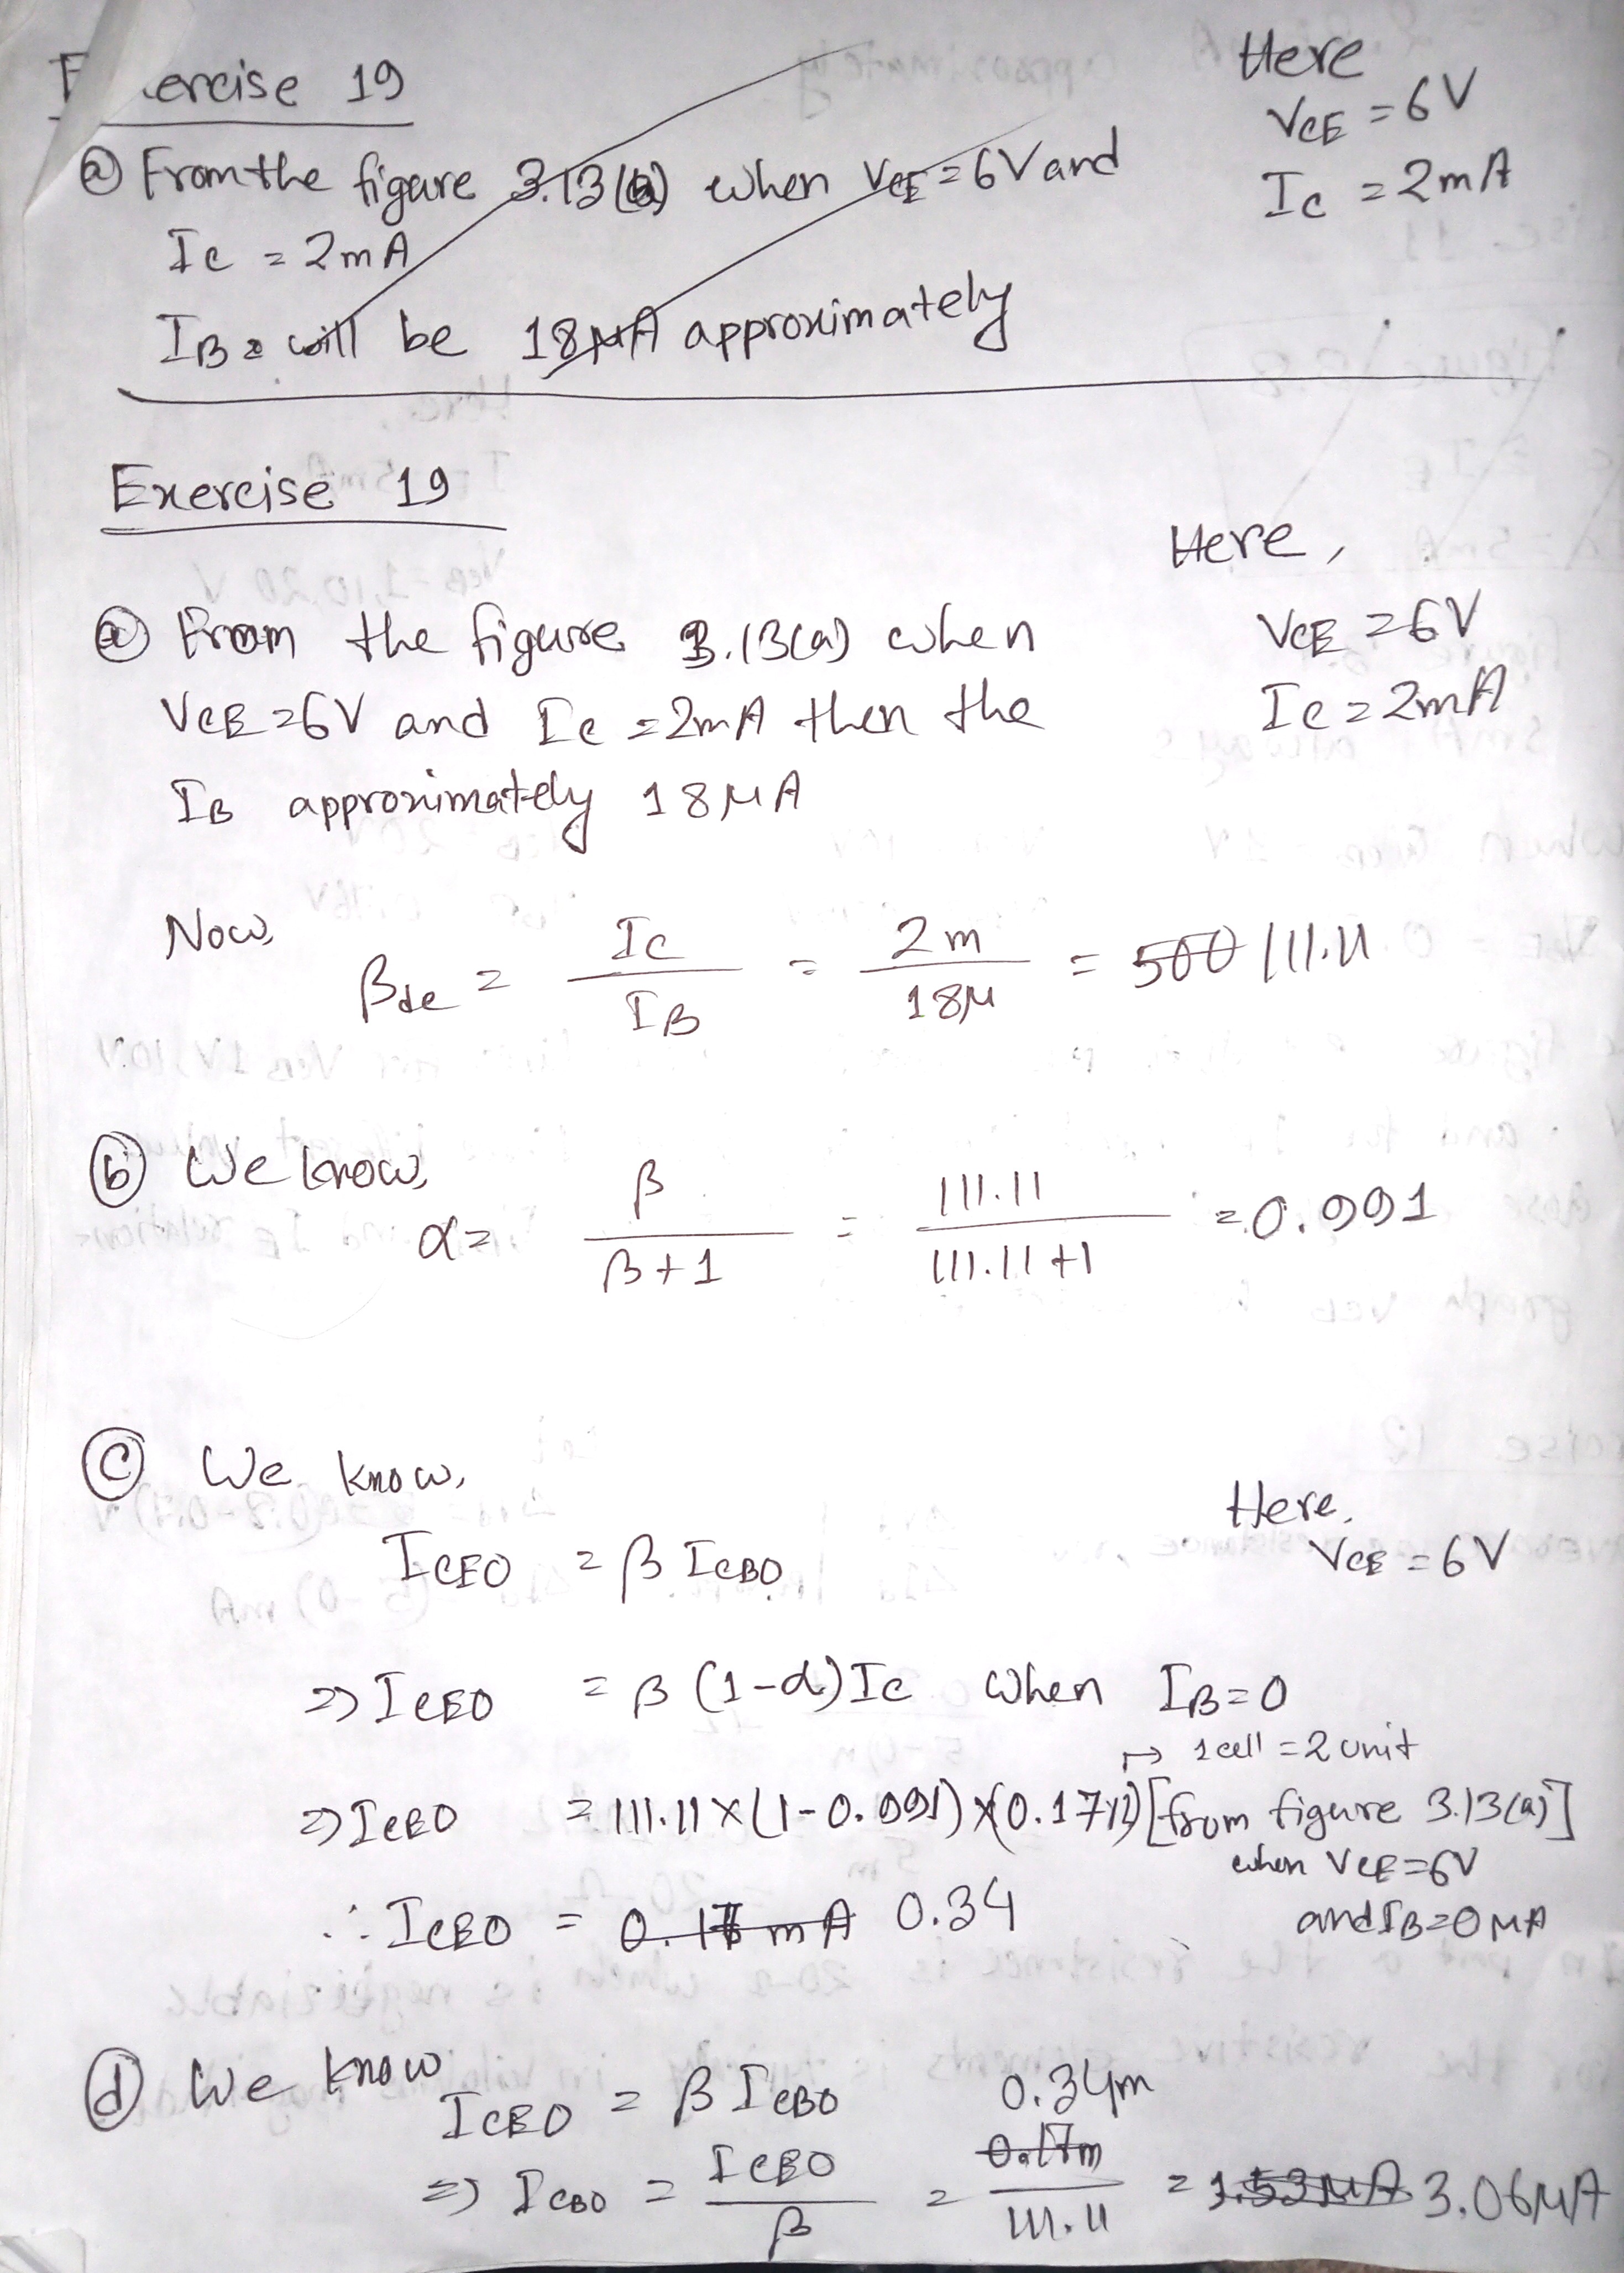 Exercise 19
Here
VCE = 6V
IC = 2mA
(a) From the figure 3.13(a) when VCE = 6V and
IC = 2mA
IB = will be 18μA approximately
Exercise 19
Here,
VCE = 6V
IC = 2mA
(a) From the figure 3.13(a) when
VCE = 6V and IC = 2mA then the
IB approximately 18μA
Now, βdc = IC / IB = 2m / 18μ = 500 111.11
(b) We know,
α = β / β+1 = 111.11 / 111.11+1 = 0.991
(c) We know,
Here,
VCE = 6V
ICEO = β ICBO
⇒ ICEO = β (1-α) IC when IB = 0
↦ 1 cell = 2 unit
⇒ ICEO = 111.11 × (1-0.991) × (0.17×2) [from figure 3.13(a)]
when VCE = 6V
and IB = 0 μA
∴ ICEO = mA 0.34
(d) We know
ICEO = β ICBO
⇒ ICBO = ICEO / β = 0.17m 0.34m / 111.11 = 1.53μA 3.06μA